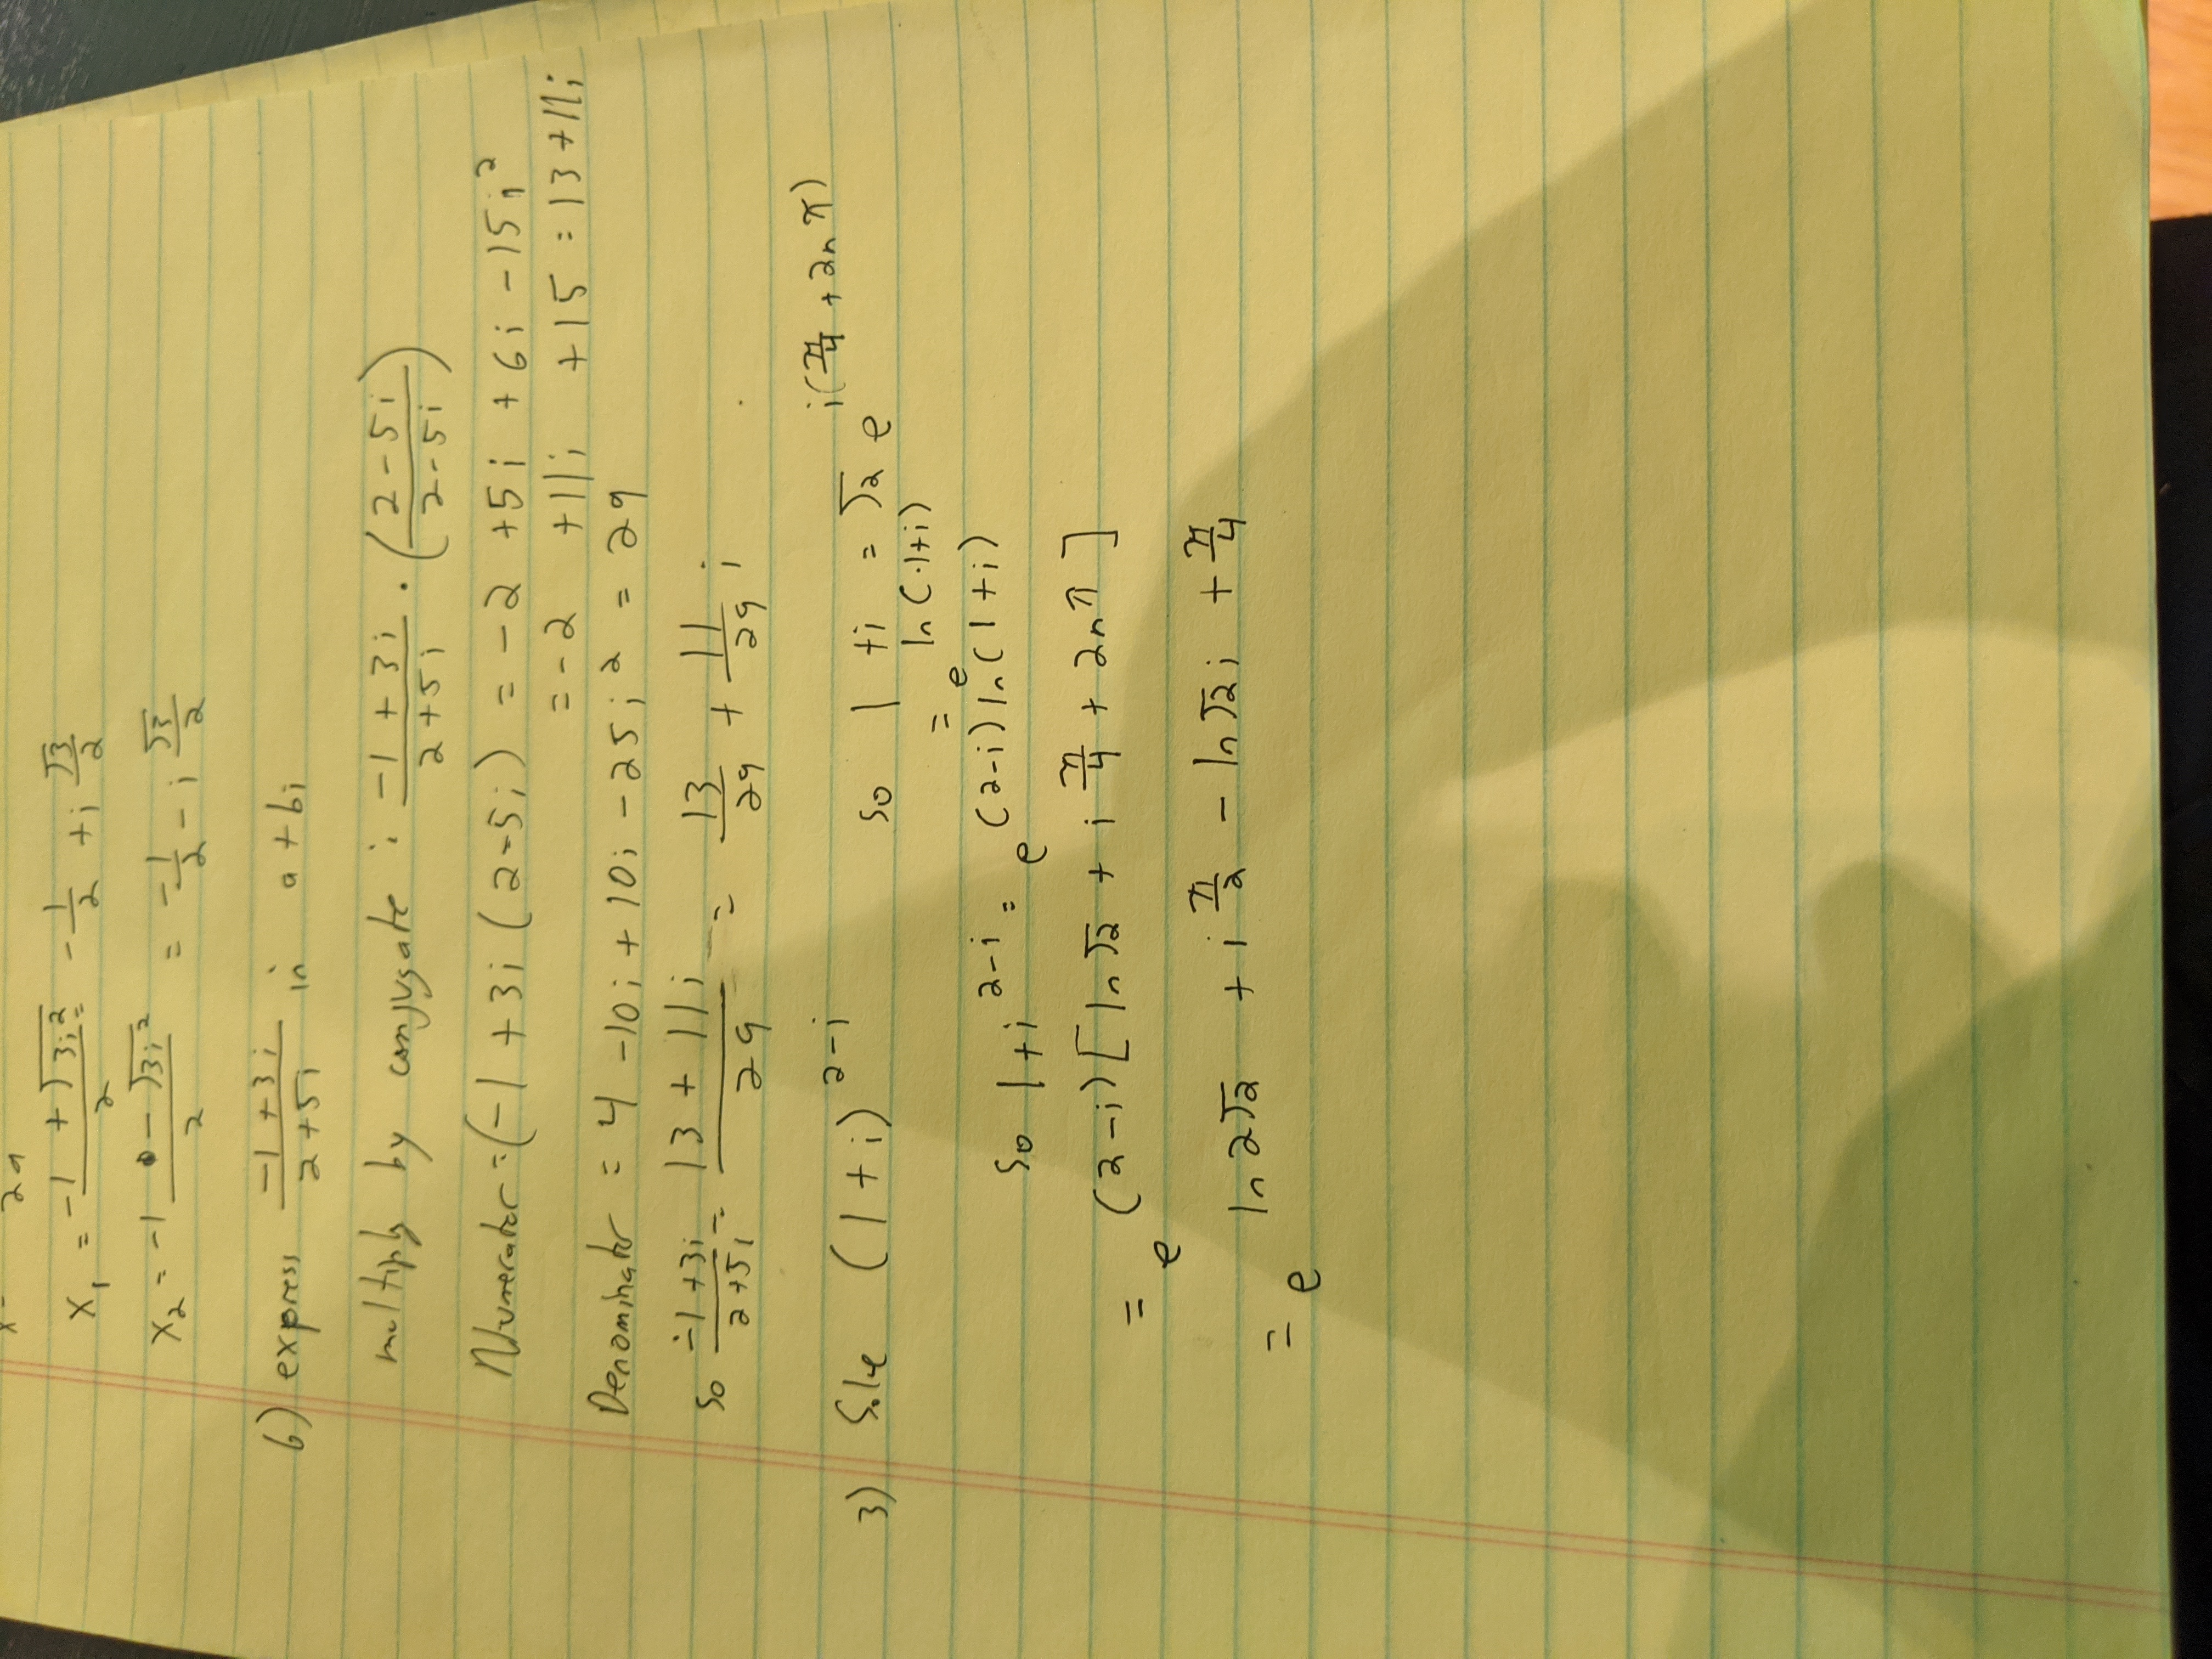 x = 2a
x₁ = (-1 + √(3i²))/2 = -1/2 + i √3/2
x₂ = (-1 - √(3i²))/2 = -1/2 - i √3/2
6) express (-1 + 3i)/(2 + 5i) in a + bi
multiply by conjugate : (-1 + 3i)/(2 + 5i) · ((2 - 5i)/(2 - 5i))
Numerator = (-1 + 3i (2 - 5i) = -2 + 5i + 6i - 15i²
= -2 + 11i + 15 = 13 + 11i
Denominator = 4 - 10i + 10i - 25i² = 29
so (-1 + 3i)/(2 + 5i) = (13 + 11i)/29 = 13/29 + 11/29 i
3) Solve (1 + i)^(2-i) so 1 + i = √2 e^(i(π/4 + 2nπ))
= e^(ln(1+i))
So 1 + i^(2-i) = e^((2-i) ln(1+i))
= e^((2-i)[ln√2 + i π/4 + 2nπ])
= e^(ln 2√2 + i π/2 - ln√2 i + π/4)